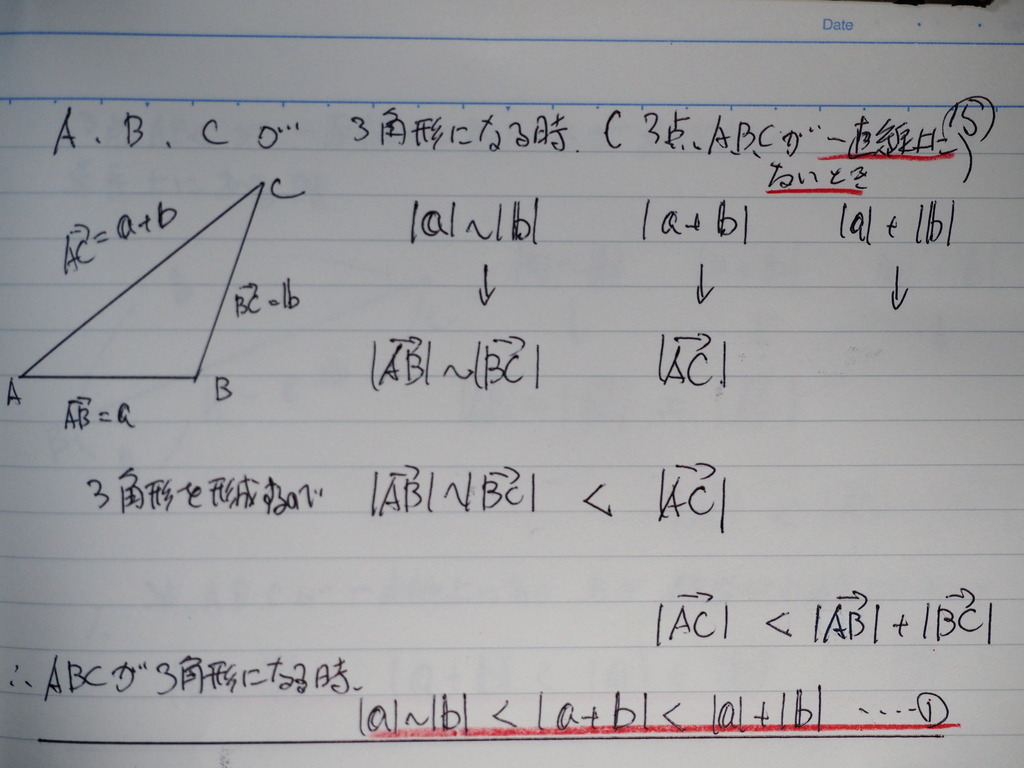 Date
A、B、Cが 3角形になる時. (3点、A,B,Cが一直線上に
ないとき
(15)
C
AC→=a+b
|a|~|b| |a+b| |a|+|b|
↓ ↓ ↓
BC→=b
|AB→|~|BC→| |AC→|
A B
AB→=a
3角形を形成するので |AB→|~|BC→| < |AC→|
|AC→| < |AB→|+|BC→|
∴ ABCが3角形になる時、
|a|~|b| < |a+b| < |a|+|b| ……①